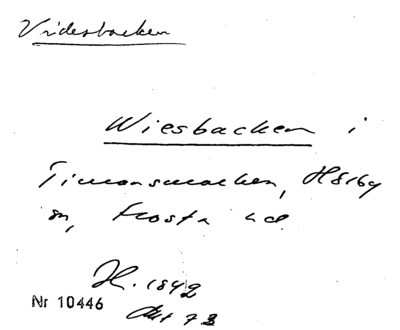 Videsbacken
Wiesbacken i
Timansmarken, Hörby
sn, Frosta hd
H. 1842
Nr 10446
Akt 73